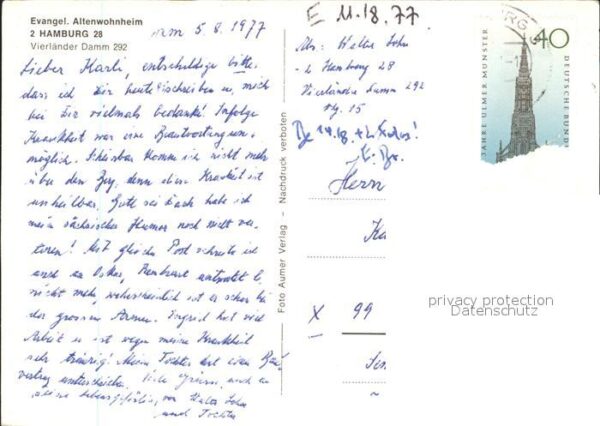 Evangel. Altenwohnheim
2 HAMBURG 28
Vierländer Damm 292
vom 5.8.1977
Lieber Karli, entschuldige bitte,
dass ich Dir heute schreibe u. mich
bei Dir vielmals bedanke! Infolge
Krankheit war eine Beantwortung un-
möglich. Scheinbar komme ich nicht mehr
über den Berg, denn diese Krankheit ist
unheilbar. Gott sei Dank habe ich
mein sächsischer Humor noch nicht ver-
loren! Mit gleicher Post schreibe ich
auch an Oskar,
nicht mehr, wahrscheinlich ist er schon bei
der grossen Armee. Ingrid hat viel
Arbeit u. ist wegen meine Krankheit
sehr traurig! Meine Tochter hat einen
vertrag unterschrieben. Viele Grüsse, auch an
von Walter
und Tochter
Foto Aumer Verlag - Nachdruck verboten
E 11.18.77
Abs: Walter
2 Hamburg 28
Vierländer Damm 292
15
14.18.
Herrn
Ka
X 99
40
JAHRE ULMER MÜNSTER
DEUTSCHE BUND
privacy protection
Datenschutz